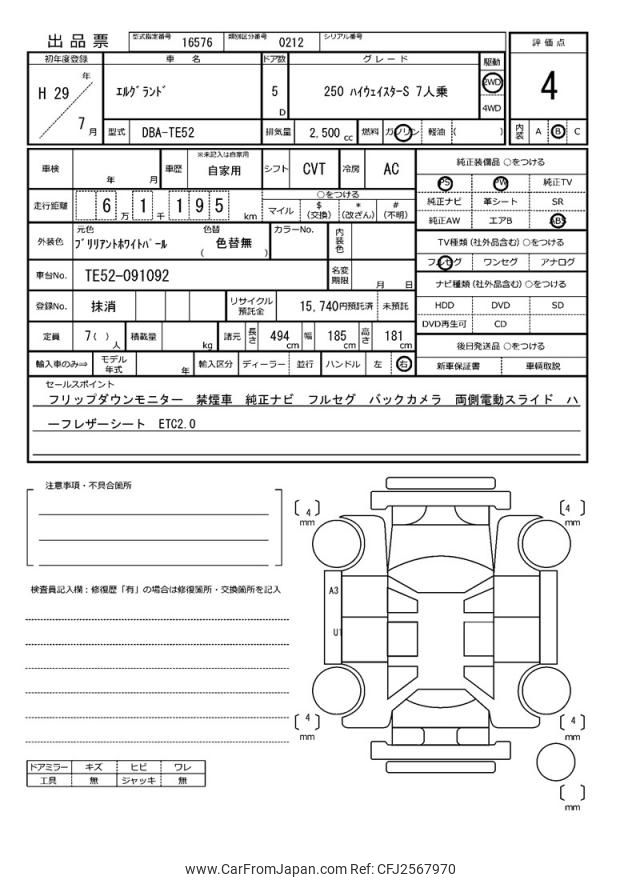 出品票
型式指定番号 16576 類別区分番号 0212 シリアル番号
初年度登録 車名 ドア数 グレード 駆動 評価点
H 29 年 7 月
エルグランド 5 D 250 ハイウェイスターS 7人乗 2WD 4WD 4
型式 DBA-TE52 排気量 2,500 cc 燃料 ガソリン 軽油 ( ) 内装 A B C
車検 年 月 車歴 ※未記入は自家用 自家用 シフト CVT 冷房 AC
走行距離 6 万 1 千 1 9 5 km ○をつける
マイル $ (交換) * (改ざん) # (不明)
外装色 元色 ブリリアントホワイトパール 色替 ( 色替無 ) カラーNo. 内装色
車台No. TE52-091092 名変期限 月 日
登録No. 抹消 リサイクル預託金 15,740円預託済 未預託
定員 7( ) 人 積載量 kg 諸元 長さ 494 cm 幅 185 cm 高さ 181 cm
輸入車のみ⇒ モデル年式 年 輸入区分 ディーラー 並行 ハンドル 左 右
純正装備品 ○をつける
PS PW 純正TV
純正ナビ 革シート SR
純正AW エアB ABS
TV種類 (社外品含む) ○をつける
フルセグ ワンセグ アナログ
ナビ種類 (社外品含む) ○をつける
HDD DVD SD
DVD再生可 CD
後日発送品 ○をつける
新車保証書 車輌取説
セールスポイント
フリップダウンモニター 禁煙車 純正ナビ フルセグ バックカメラ 両側電動スライド ハ
ーフレザーシート ETC2.0
注意事項・不具合箇所
検査員記入欄:修復歴「有」の場合は修復箇所・交換箇所を記入
ドアミラー キズ ヒビ ワレ
工具 無 ジャッキ 無
4 mm
4 mm
A3
U1
4 mm
4 mm
mm
www.CarFromJapan.com Ref: CFJ2567970